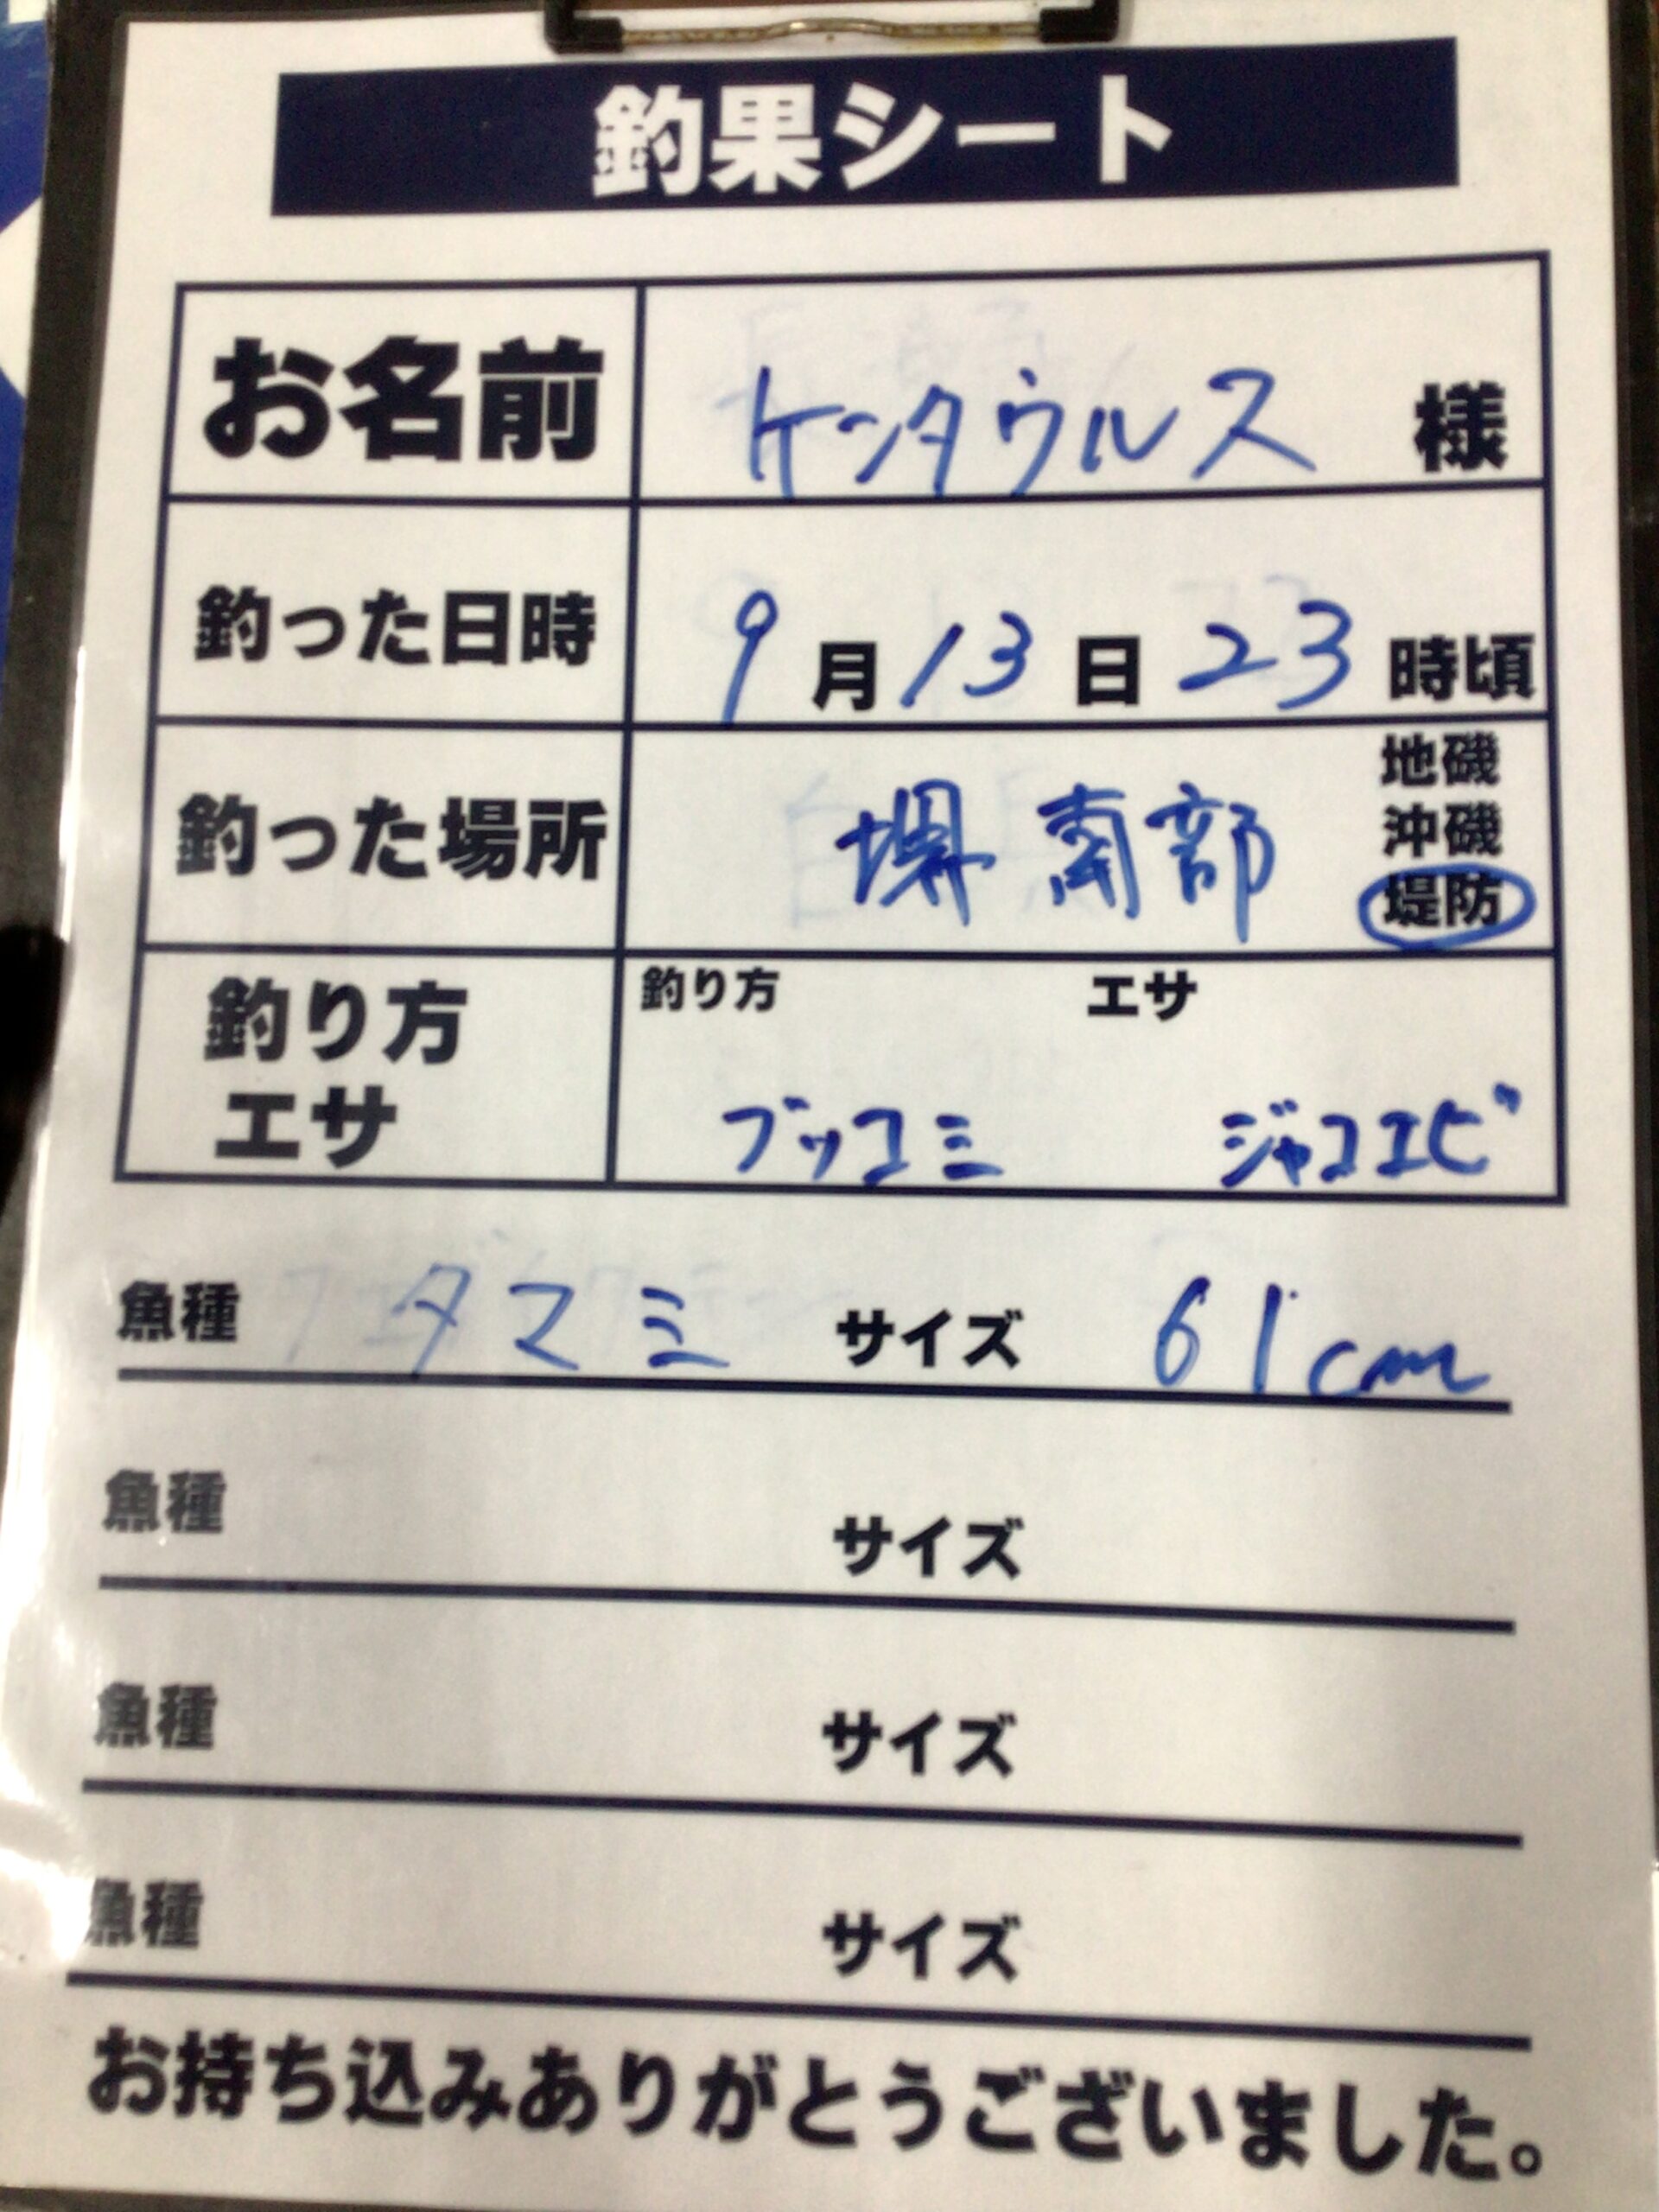 釣果シート
お名前 ケンタウルス 様
釣った日時 9月13日23時頃
地磯
釣った場所 堺南部 沖磯
堤防
釣り方 釣り方 エサ
エサ ブッコミ ジャコエビ
魚種 タマミ サイズ 61cm
魚種 サイズ
魚種 サイズ
魚種 サイズ
お持ち込みありがとうございました。